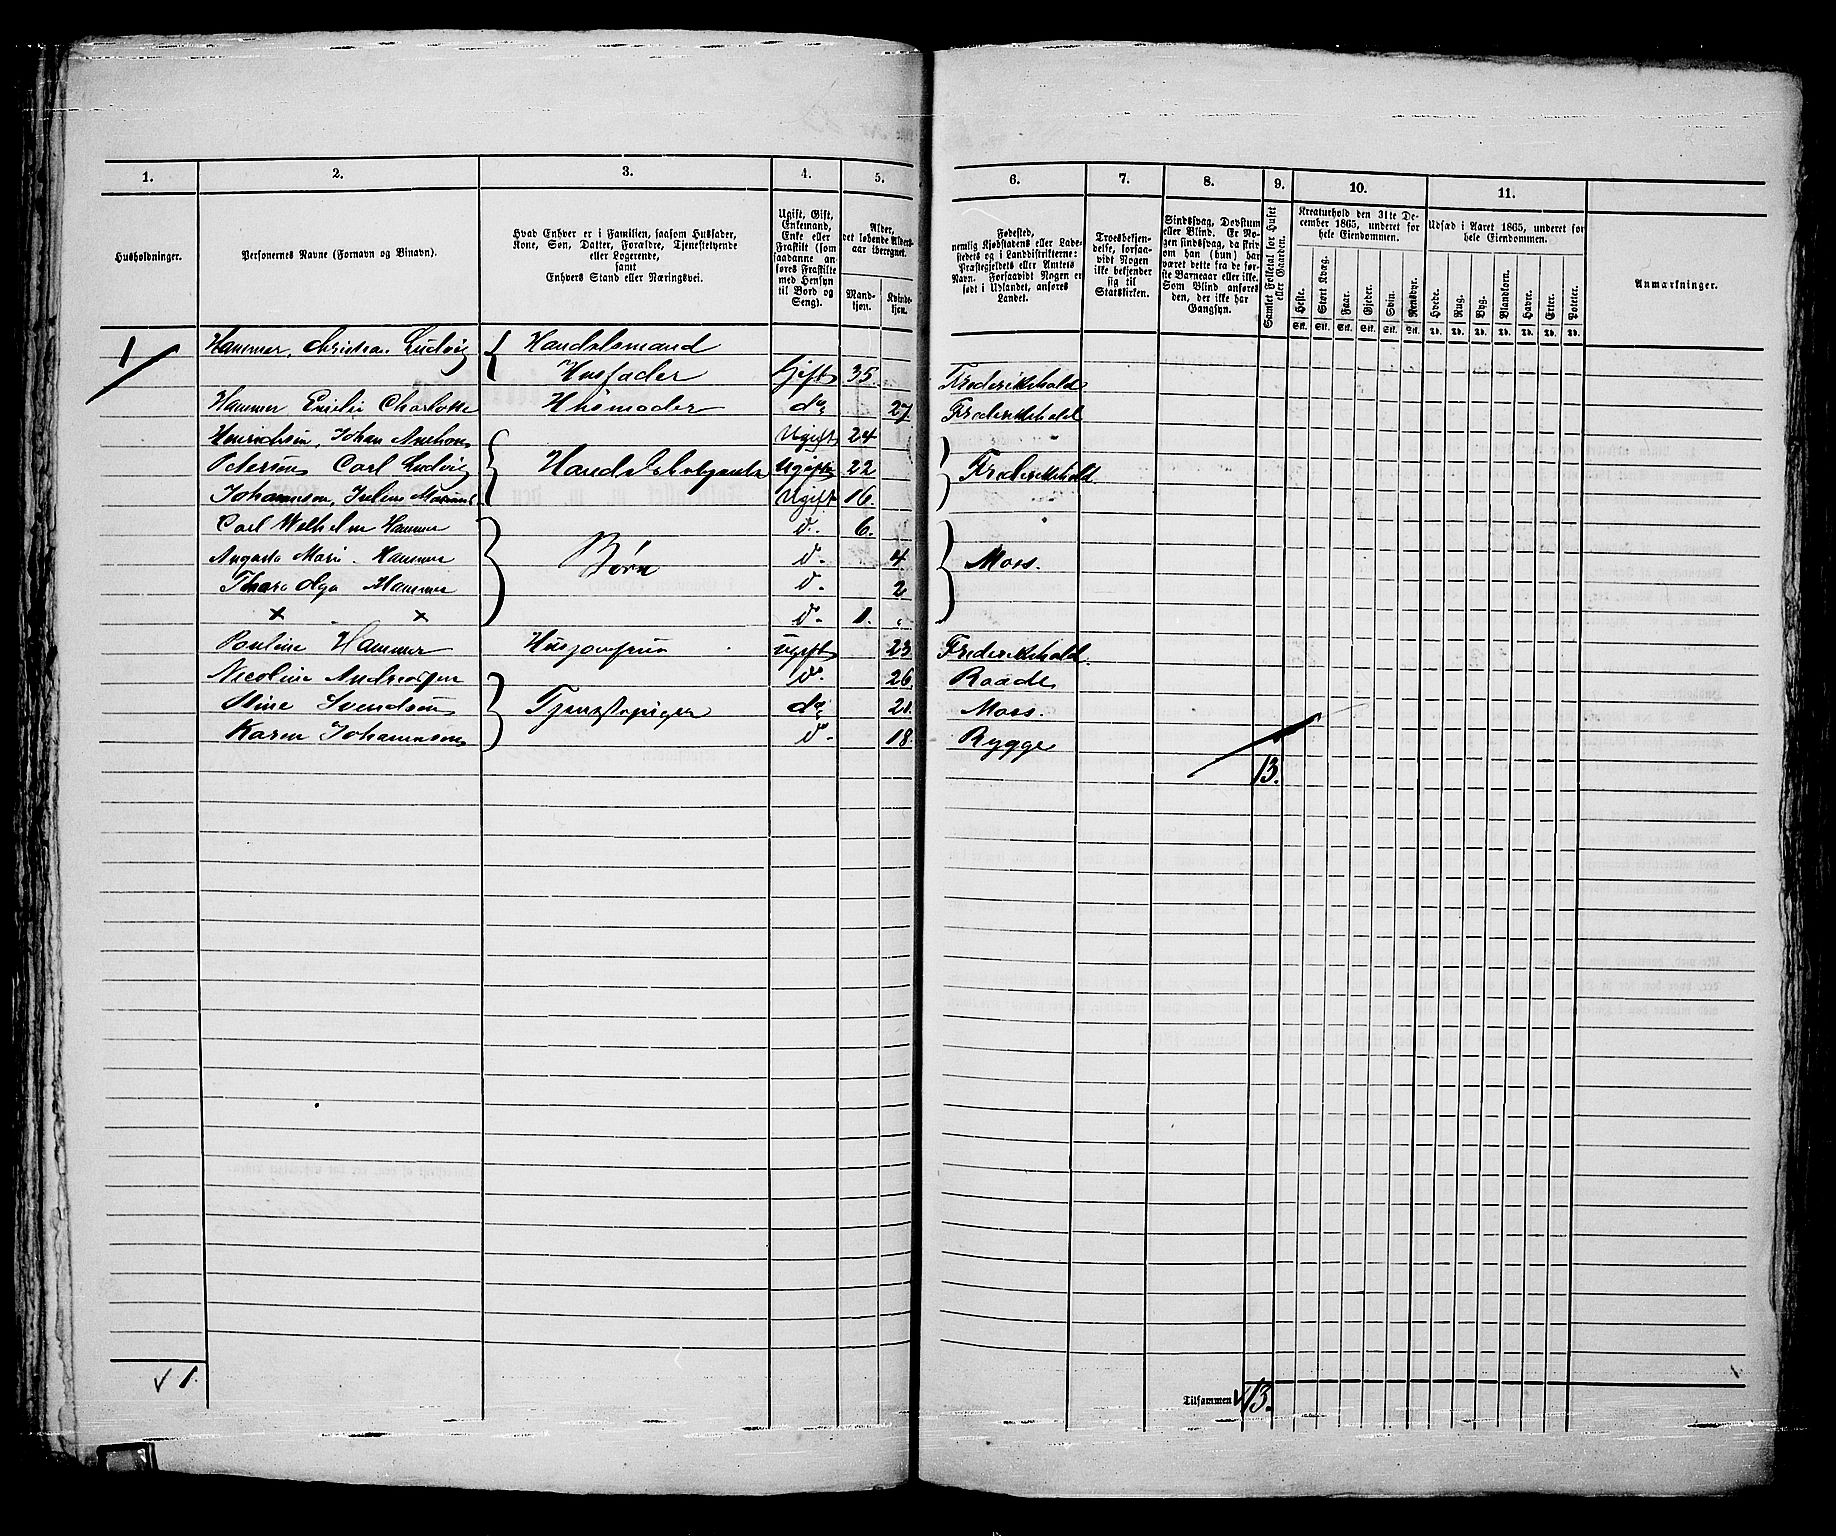 1. 2. 3. 4. 5. 6. 7. 8. 9. 10. 11.
Husholdninger.
Personernes Navne (Fornavn og Binavn).
Hvad Enhver er i Familien, saasom Husfader,
Kone, Søn, Datter, Forældre, Tjenestetyende
eller Logerende,
samt
Enhvers Stand eller Næringsvei.
Ugift, Gift,
Enkemand,
Enke eller
Fraskilt (som
saadanne an-
føres Fraskilte
med Hensyn
til Bord og
Seng).
Alder,
det løbende Alders-
aar iberegnet.
Mand-
kjøn.
Kvinde-
kjøn.
Fødested,
nemlig Kjøbstadens eller Lade-
stedets og i Landdistrikterne:
Præstegjeldets eller Amtets
Navn. Forsaavidt Nogen er
født i Udlandet, anføres
Landet.
Troesbekjen-
delse, forsaa-
vidt Nogen
ikke bekjender
sig til
Statskirken.
Sindssvag, Døvstum
eller Blind. Er No-
gen sindssvag, da skriv
om han (hun) har
været dette fra de før-
ste Barneaar eller ikke.
Som Blind anføres
den, der ikke har
Gangsyn.
Samlet Folketal for Huset
eller Gaarden.
Kreaturhold den 31te De-
cember 1865, underet for
hele Eiendommen.
Heste. Stort Kvæg. Faar. Gjeder. Svin. Rensdyr.
Stk. Stk. Stk. Stk. Stk. Stk.
Udsæd i Aaret 1865, underet for
hele Eiendommen.
Hvede. Rug. Byg. Blandkorn. Havre. Erter. Poteter.
Td. Td. Td. Td. Td. Td. Td.
Anmærkninger.
1 Hammer, Christian Ludvig Handelsmand
Husfader Gift 35. Frederikshald
Hammer Emilie Charlotte Husmoder do 27. Frederikshald
Henrichsen, Johan Anthon Ugift 24
Petersen Carl Ludvig Handelsbetjente Ugift 22 Frederikshald
Johannsen, Julius Ugift 16.
Carl Wilhelm Hammer d. 6.
Augusta Marie Hammer Børn d. 4 Moss.
Thara Olga Hammer d. 2
× × d. 1.
Pouline Hammer Husjomfrue ugift 23. Frederikshald.
Nicoline Andreassen d. 26 Raade
Stine Svendsen Tjenestepiger do 21. Moss.
Karen Johannesen d. 18. Rygge
13.
√ 1.
Tilsammen √ 13.